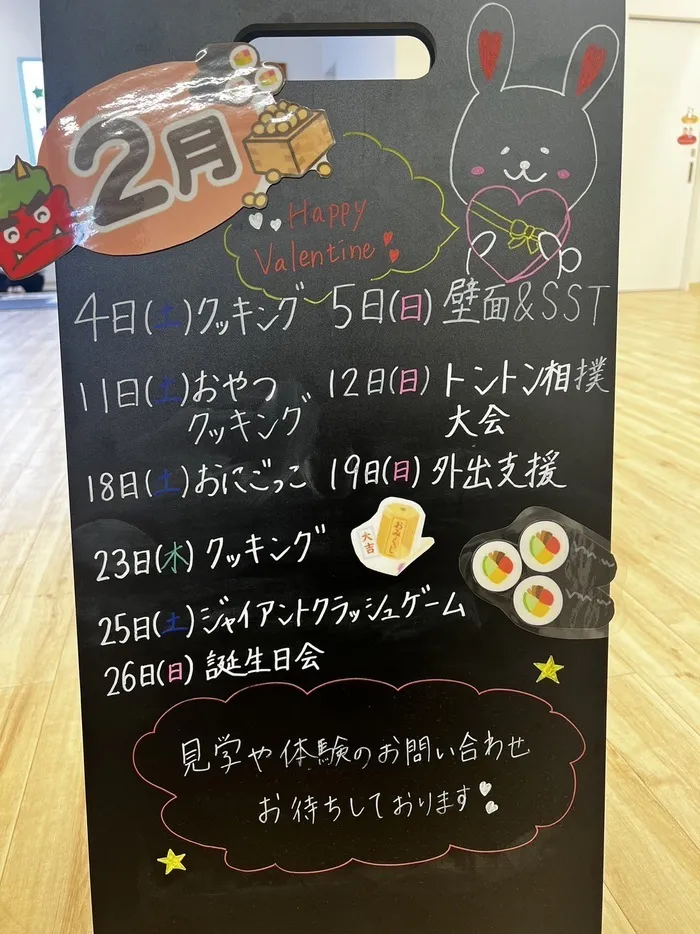 2月
Happy
Valentine
4日(土)クッキング 5日(日)壁面&SST
11日(土)おやつ 12日(日)トントン相撲
クッキング 大会
18日(土)おにごっこ 19日(日)外出支援
23日(木)クッキング
大吉 おみくじ
25日(土)ジャイアントクラッシュゲーム
26日(日)誕生日会
見学や体験のお問い合わせ
お待ちしております